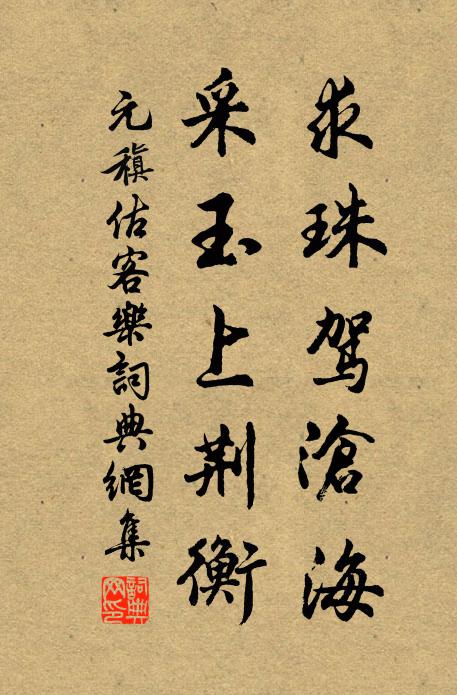 求珠駕滄海
采玉上荆衡
元稹估客樂詞典網集
詞典網印